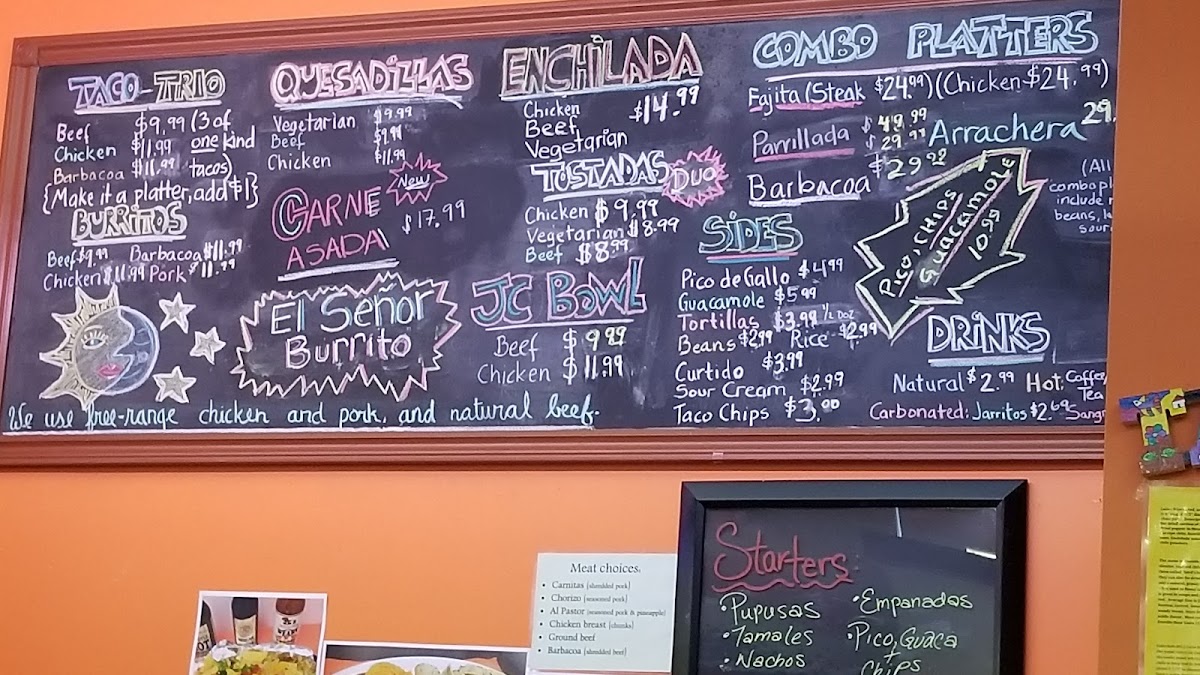 TACO-TRIO
Beef $9.99 (3 of
Chicken $11.99 one kind
Barbacoa $11.99 tacos)
{Make it a platter, add $1}
BURRITOS
Beef $9.99 Barbacoa $11.99
Chicken $11.99 Pork $11.99
QUESADILLAS
Vegetarian $9.99
Beef $9.99
Chicken $11.99
New
CARNE
ASADA $17.99
El Señor
Burrito
ENCHILADA
Chicken $14.99
Beef
Vegetarian
TOSTADAS DUO
Chicken $9.99
Vegetarian $8.99
Beef $8.99
JC BOWL
Beef $9.99
Chicken $11.99
COMBO PLATTERS
Fajita (Steak $24.99) (Chicken $24.99)
Parrillada $49.99
$29.99
Arrachera 29.
Barbacoa $29.99
(All
combo pl
include
beans,
sour
PICO, CHIPS
Guacamole
10.99
SIDES
Pico de Gallo $4.99
Guacamole $5.99
Tortillas $3.99 1/2 DOZ
Beans $2.99 Rice $2.99
Curtido $3.99
Sour Cream $2.99
Taco Chips $3.00
DRINKS
Natural $2.99 Hot: Coffee,
Tea
Carbonated: Jarritos $2.69 Sangr
We use free-range chicken and pork, and natural beef.
Meat choices:
• Carnitas (shredded pork)
• Chorizo (seasoned pork)
• Al Pastor (seasoned pork & pineapple)
• Chicken breast (chunks)
• Ground beef
• Barbacoa (shredded beef)
Starters
• Pupusas
• Tamales
• Nachos
• Empanadas
• Pico, Guaca
+
Chips